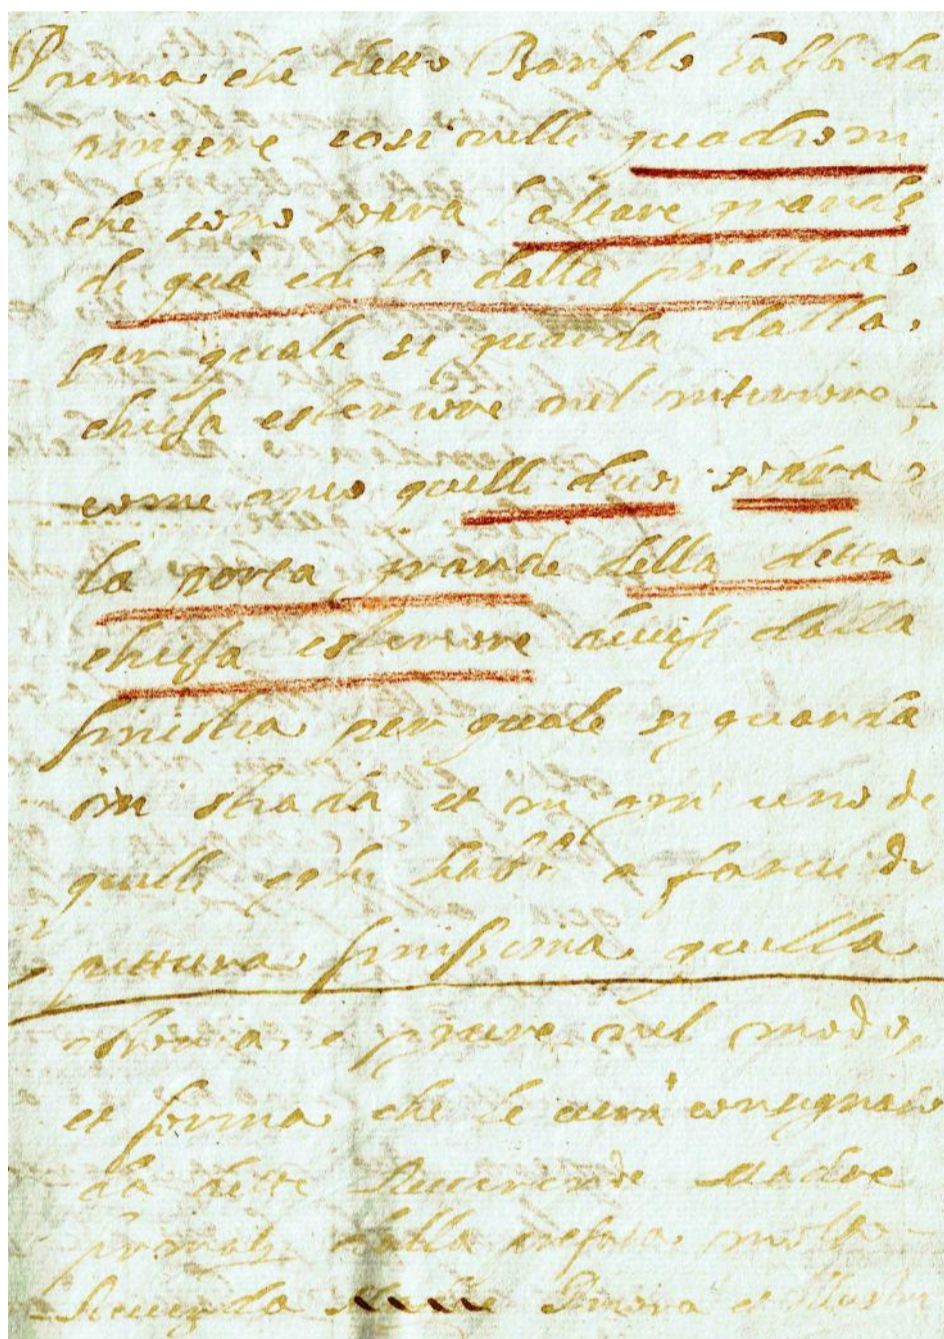 Prima che detto Bonfilo habbi da
pingere così nelli quadroni
che sono sovra l'altare grande
di quà e di là dalla finestra
per quale si guarda dalla
chiesa esteriore nel interiore,
come anco quelli duoi sovra
la porta grande della detta
chiesa esteriore divisi dalla
finistra per quale si guarda
in strada, et in ogn'uno di
quelli habbi a farvi di
pittura finissima quella
istoria, e figure nel modo,
et forma che le verrà consignato
da dette Reverende Madre
dalla prefata molto
Reverenda Priora et